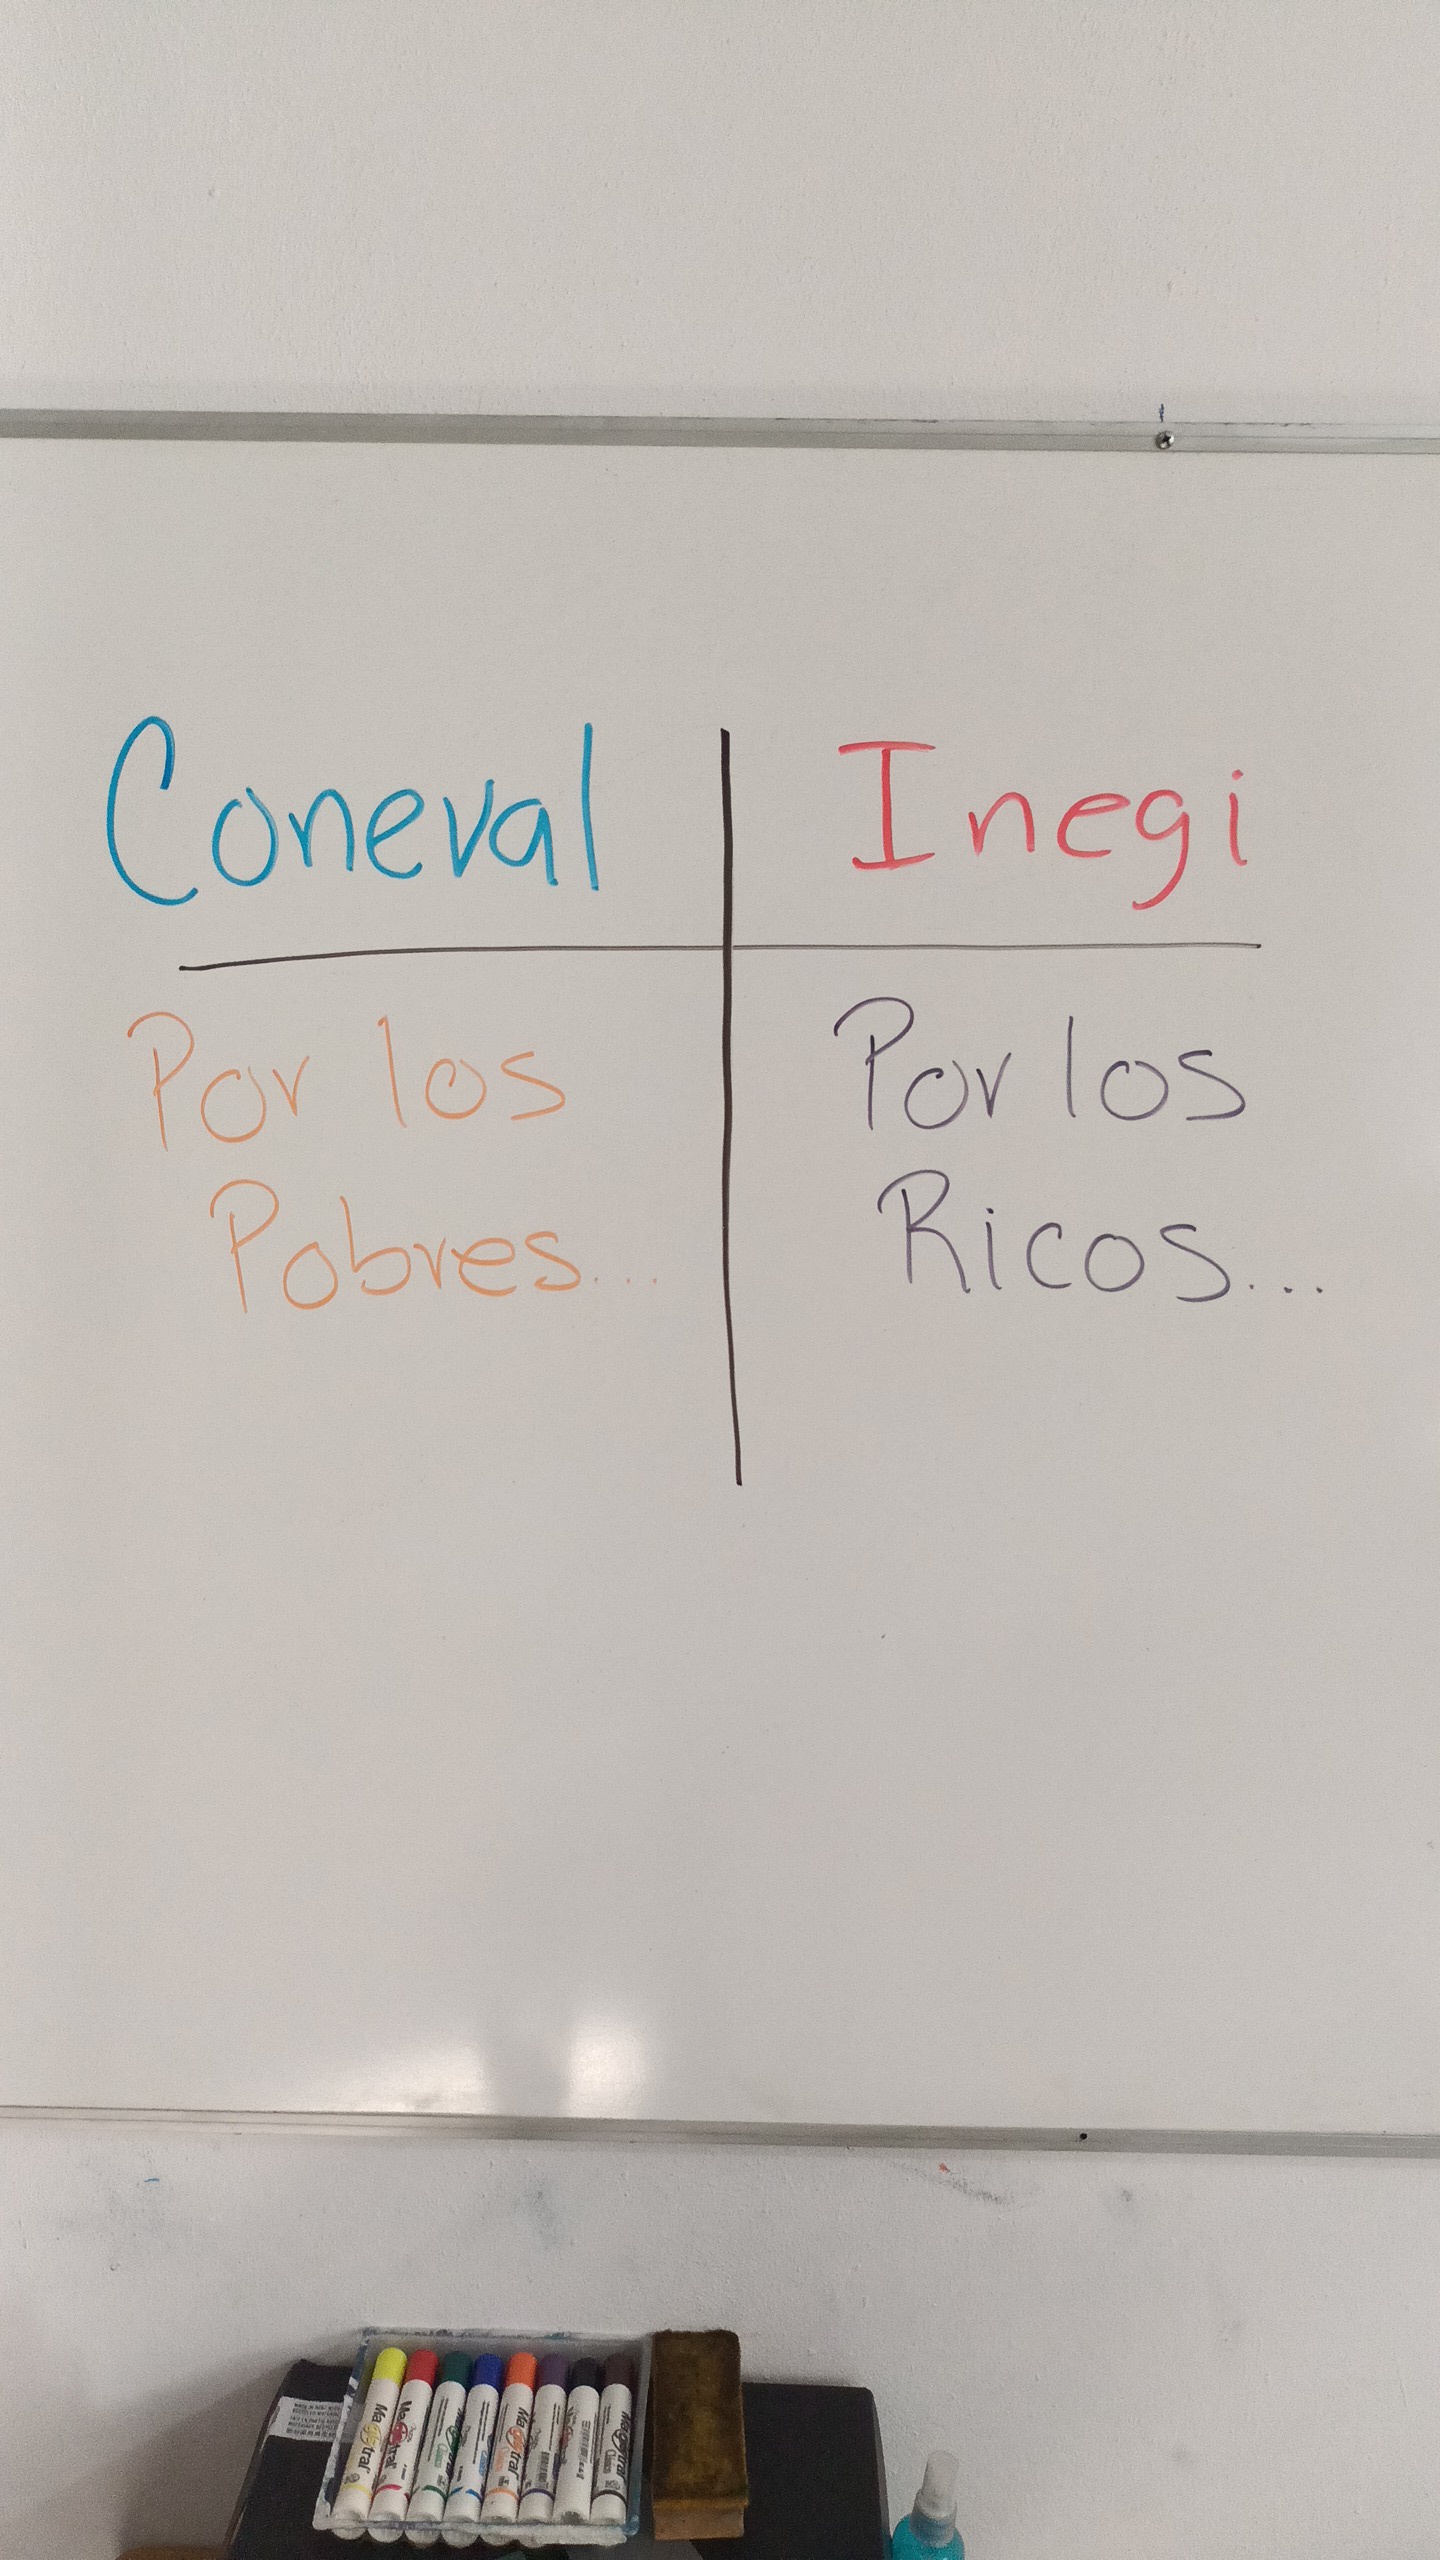 Coneval
Inegi
Por los
Pobres...
Por los
Ricos...
Magistral
Magistral
Magistral
Magistral